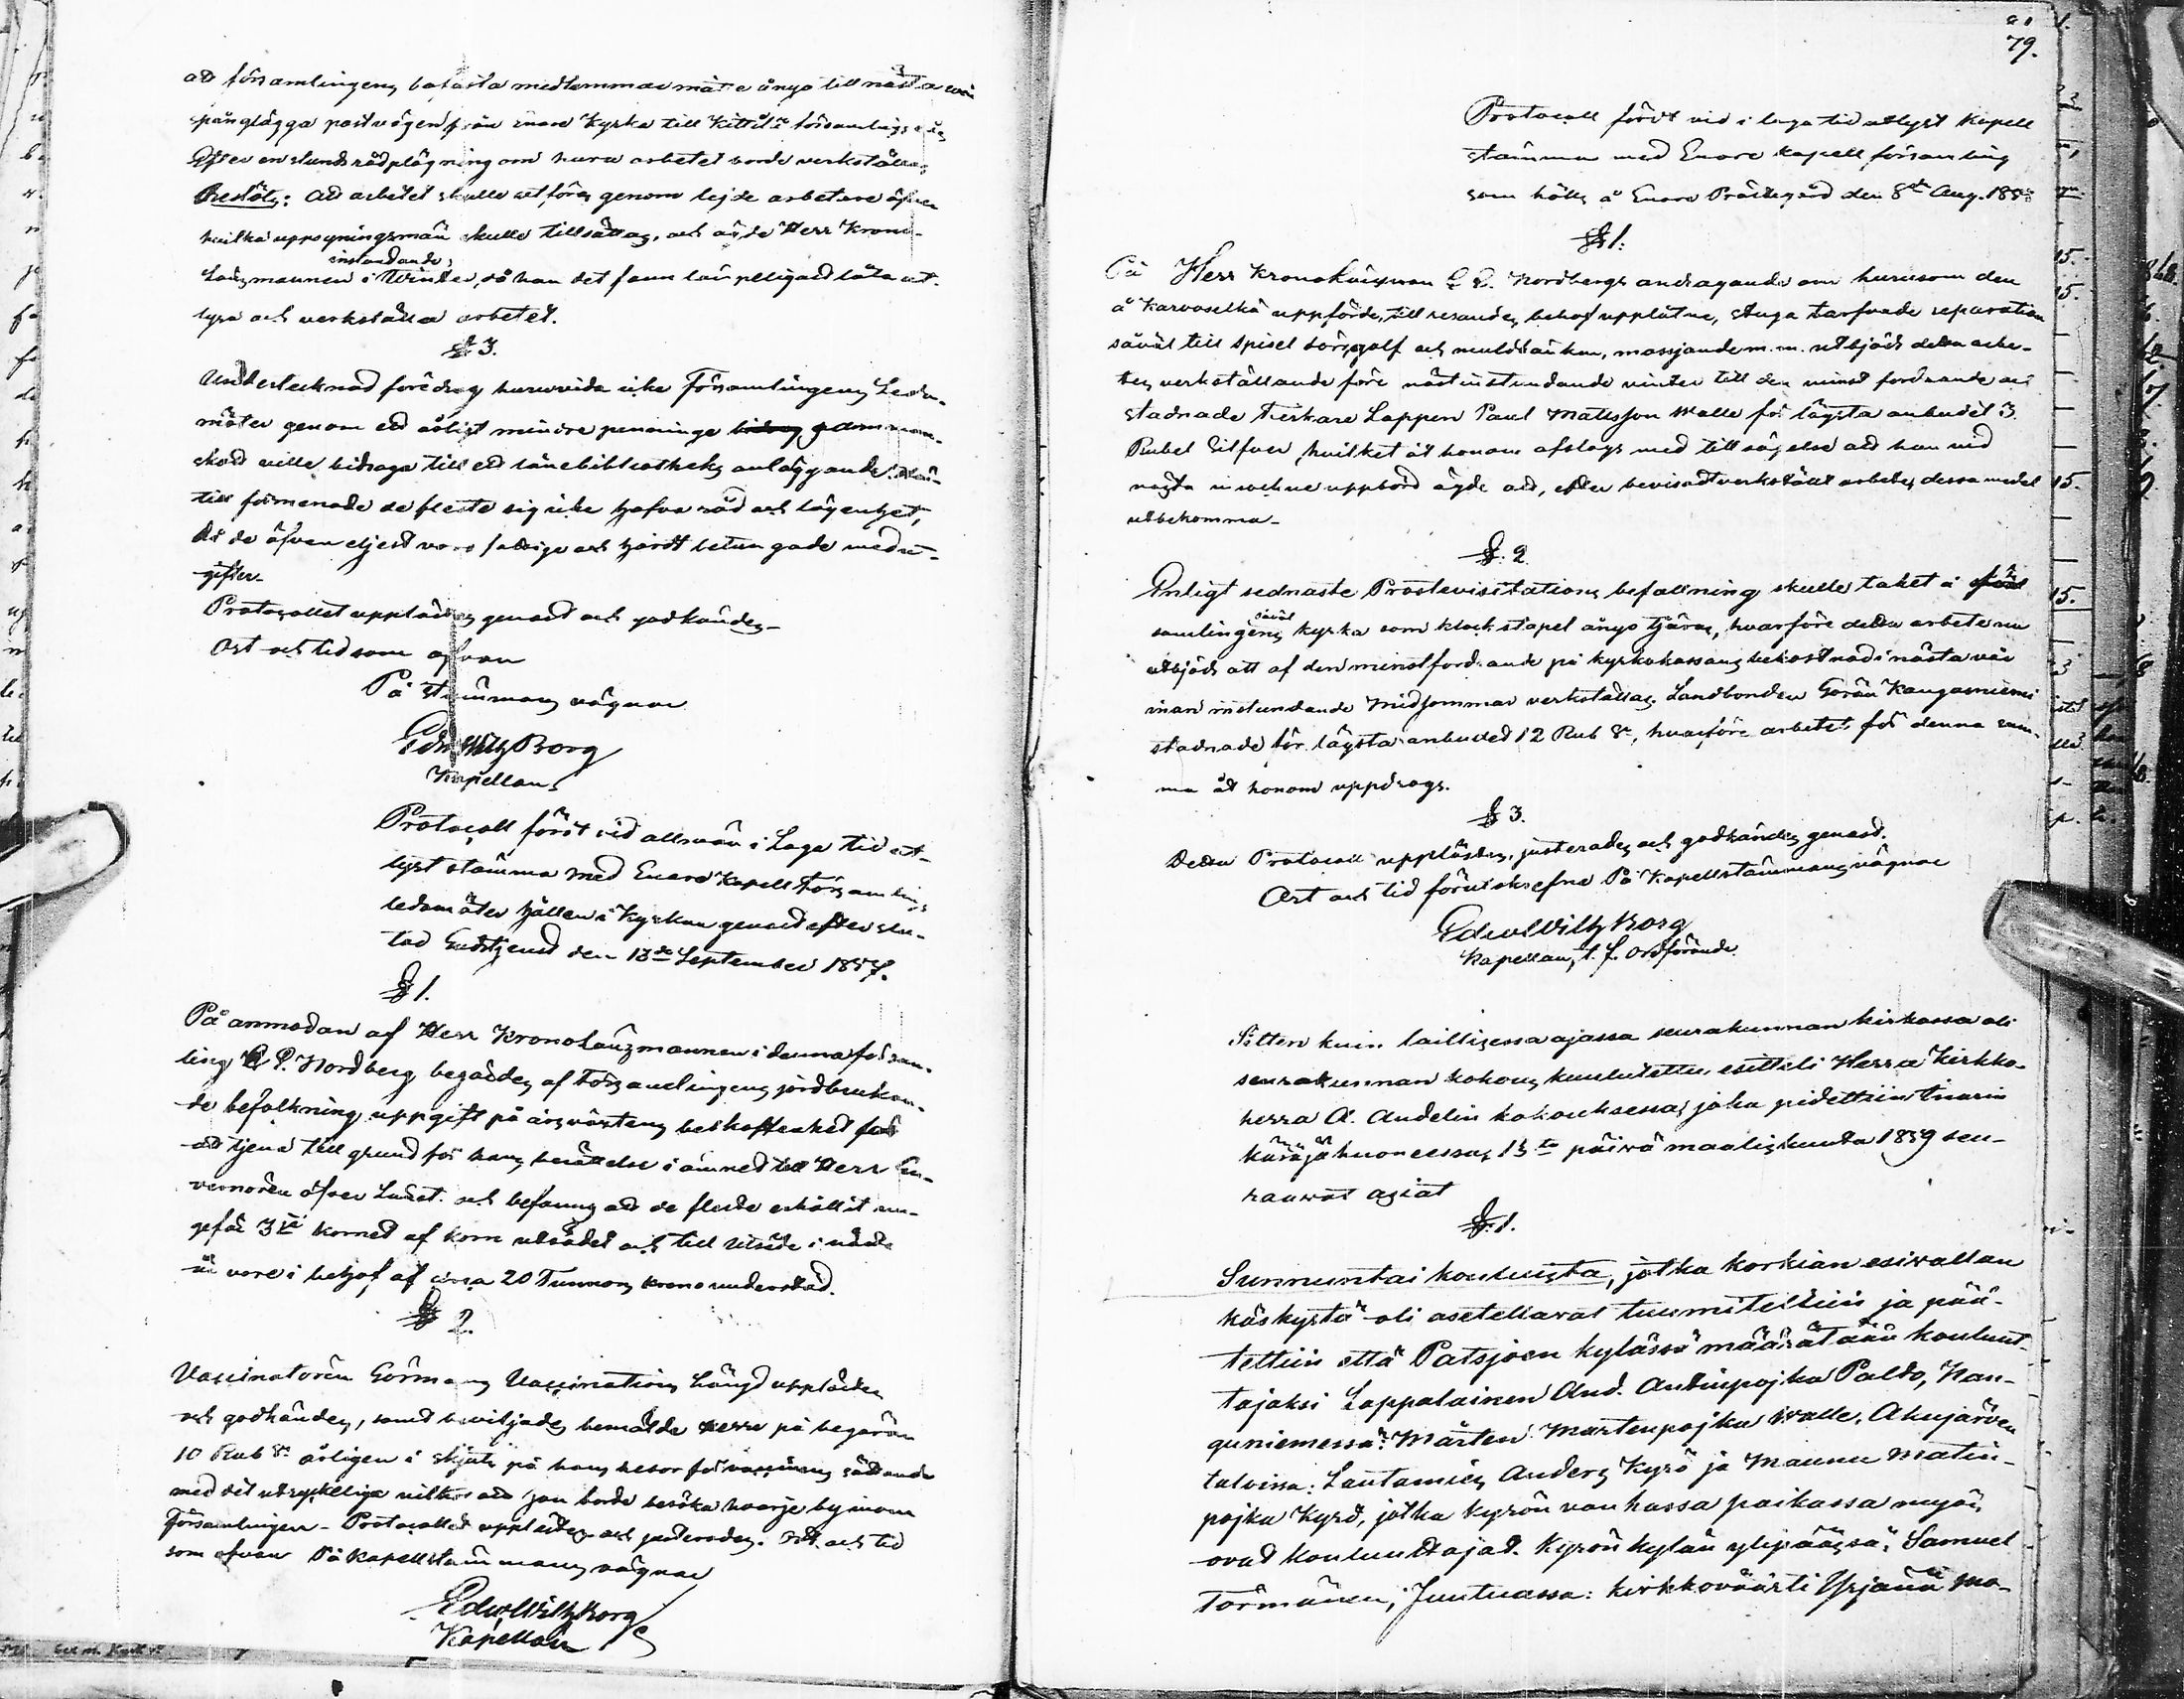 att församlingens bofasta medlemmar måtte ånyo till nästa
spånglägga postvägen från Enare Kyrka till Kittilä församlings
Efter en stunds rådplägning om huru arbetet borde verkställas
Beslöts: att arbetet skulle utföras genom lejde arbetare öfver
hvilka uppsyningsmän skulle tillsättas, och ägde Herr Krono-
instundande
Länsmannen i Winter, då han det fann lämpeligast låta ut-
lysa och verkställa arbetet.
§ 3.
Undertecknad föredrog huruvida icke Församlingens Leda-
möter genom ett årligt mindre penninge bidrag
skott ville bidraga till ett lånebibliotheks anläggande. Här-
till förmenade de fleste sig icke hafva råd och lägenhet,
då de äfven eljest voro fattige och hårdt betungade med ut-
gifter.
Protocollet upplästes genast och godkändes.
Ort och tid som ofvan
På stämmans vägnar
Edw Wilh Borg
Kapellan
Protocoll fördt vid allmän i Laga tid ut-
lyst stämma med Enare Kapell Församlings
ledamöter hållen i Kyrkan genast efter slu-
tad Gudstjenst den 13de September 1857.
§ 1.
På anmodan af Herr Kronolänsmannen i denna försam-
ling P. Nordberg begärdes af Församlingens jordbrukan-
de befolkning uppgift på årsväxtens beskaffenhet för
att tjena till grund för hans berättelse i ämnet till Herr Gu-
vernören öfver Länet. och befanns att de fleste erhållit un-
gefär 3je kornet af korn utsädet och till utsäde i nästa
år vore i behof af cirea 20 Tunnors krono understöd.
§ 2.
Vaccinatören Görmans Vaccinations Längd upplästes
och godkändes, samt beviljades bemälde Herre på begäran
10 Rub Sr årligen i skjuts på hans resor för vaccinens sättande
med det utryckliga vilkor att han borde besöka hvarje by inom
Församlingen. Protocollet upplästes och justerades. Ort och tid
som ofvan På Kapellstämmans vägnar
Edw Wilh Borg
Kapellan
79.
Protocoll fördt vid i laga tid utlyst Kapell
stämma med Enare Kapell församling
som hölls å Enare Prästegård den 8de Aug. 185
§ 1.
På Herr Kronolänsman P. Nordbergs andragande om hurusom den
å Karvaselkä uppförde, till resandes behof upplåtne, stuga tarfvade reparation
såväl till spisel dörr, golf och muldbänkar, mossjande m.m. utbjöds detta arbe-
tes verkställande före nästinstundande vinter till den minst fordrande och
stadnade fiskare Lappen Paul Mattsson Walle för lägsta anbudet 3
Rubel Silfver, hvilket åt honom afslogs med tillsägelse att han vid
nästa uppbörd ägde att, efter bevisadt verkstäldt arbete, dessa medel
utbekomma.
§. 2.
Enligt sednaste Prostevisitations befallning skulle taket å för
såväl
samlingens kyrka som klockstapel ånyo tjäras, hvarföre detta arbete nu
utbjöds att af den minstfordrande på kyrkokassans bekostnad i nästa vår
innan instundande Midsommar verkställas. Landbonden Göran Kangasniemi
stadnade för lägsta anbudet 12 Rub Sr, hvarföre arbetet för denna sum-
ma åt honom uppdrogs.
§ 3.
Detta Protocoll upplästes, justerades och godkändes genast.
Ort och tid förutskrefne På Kapellstämmans vägnar
Edw Wilh Borg
Kapellan, t. f. Ordförande.
Sitten kuin laillisessa ajassa seurakunnan kirkossa oli
seurakunnan kokous kuulutettu, esitteli Herra Kirkko-
herra A. Andelin kokouksessa, joka pidettiin Inarin
käräjähuoneessa, 13ta päivä maaliskuuta 1859 seu-
raavat asiat
§. 1.
Sunnuntai kouluista, jotka korkian esivallan
käskystä oli asetettavat tuumiteltiin ja pää-
tettiin että Patsjoen kylässä määrätään kouluut-
tajaksi Lappalainen And. Antinpojka Palto, Kan-
guniemessä: Mårten Martenpojka Walle, Akujärven
talvissa: Lautamies Anders Kyrö ja Maunu Matin-
pojka Kyrö, jotka Kyrön vanhassa paikassa myös
ovat kouluuttajat. Kyrön kylän ylipäässä: Samuel
Törmänen, Juutuassa: kirkkoväärti Yrjänä Mo-